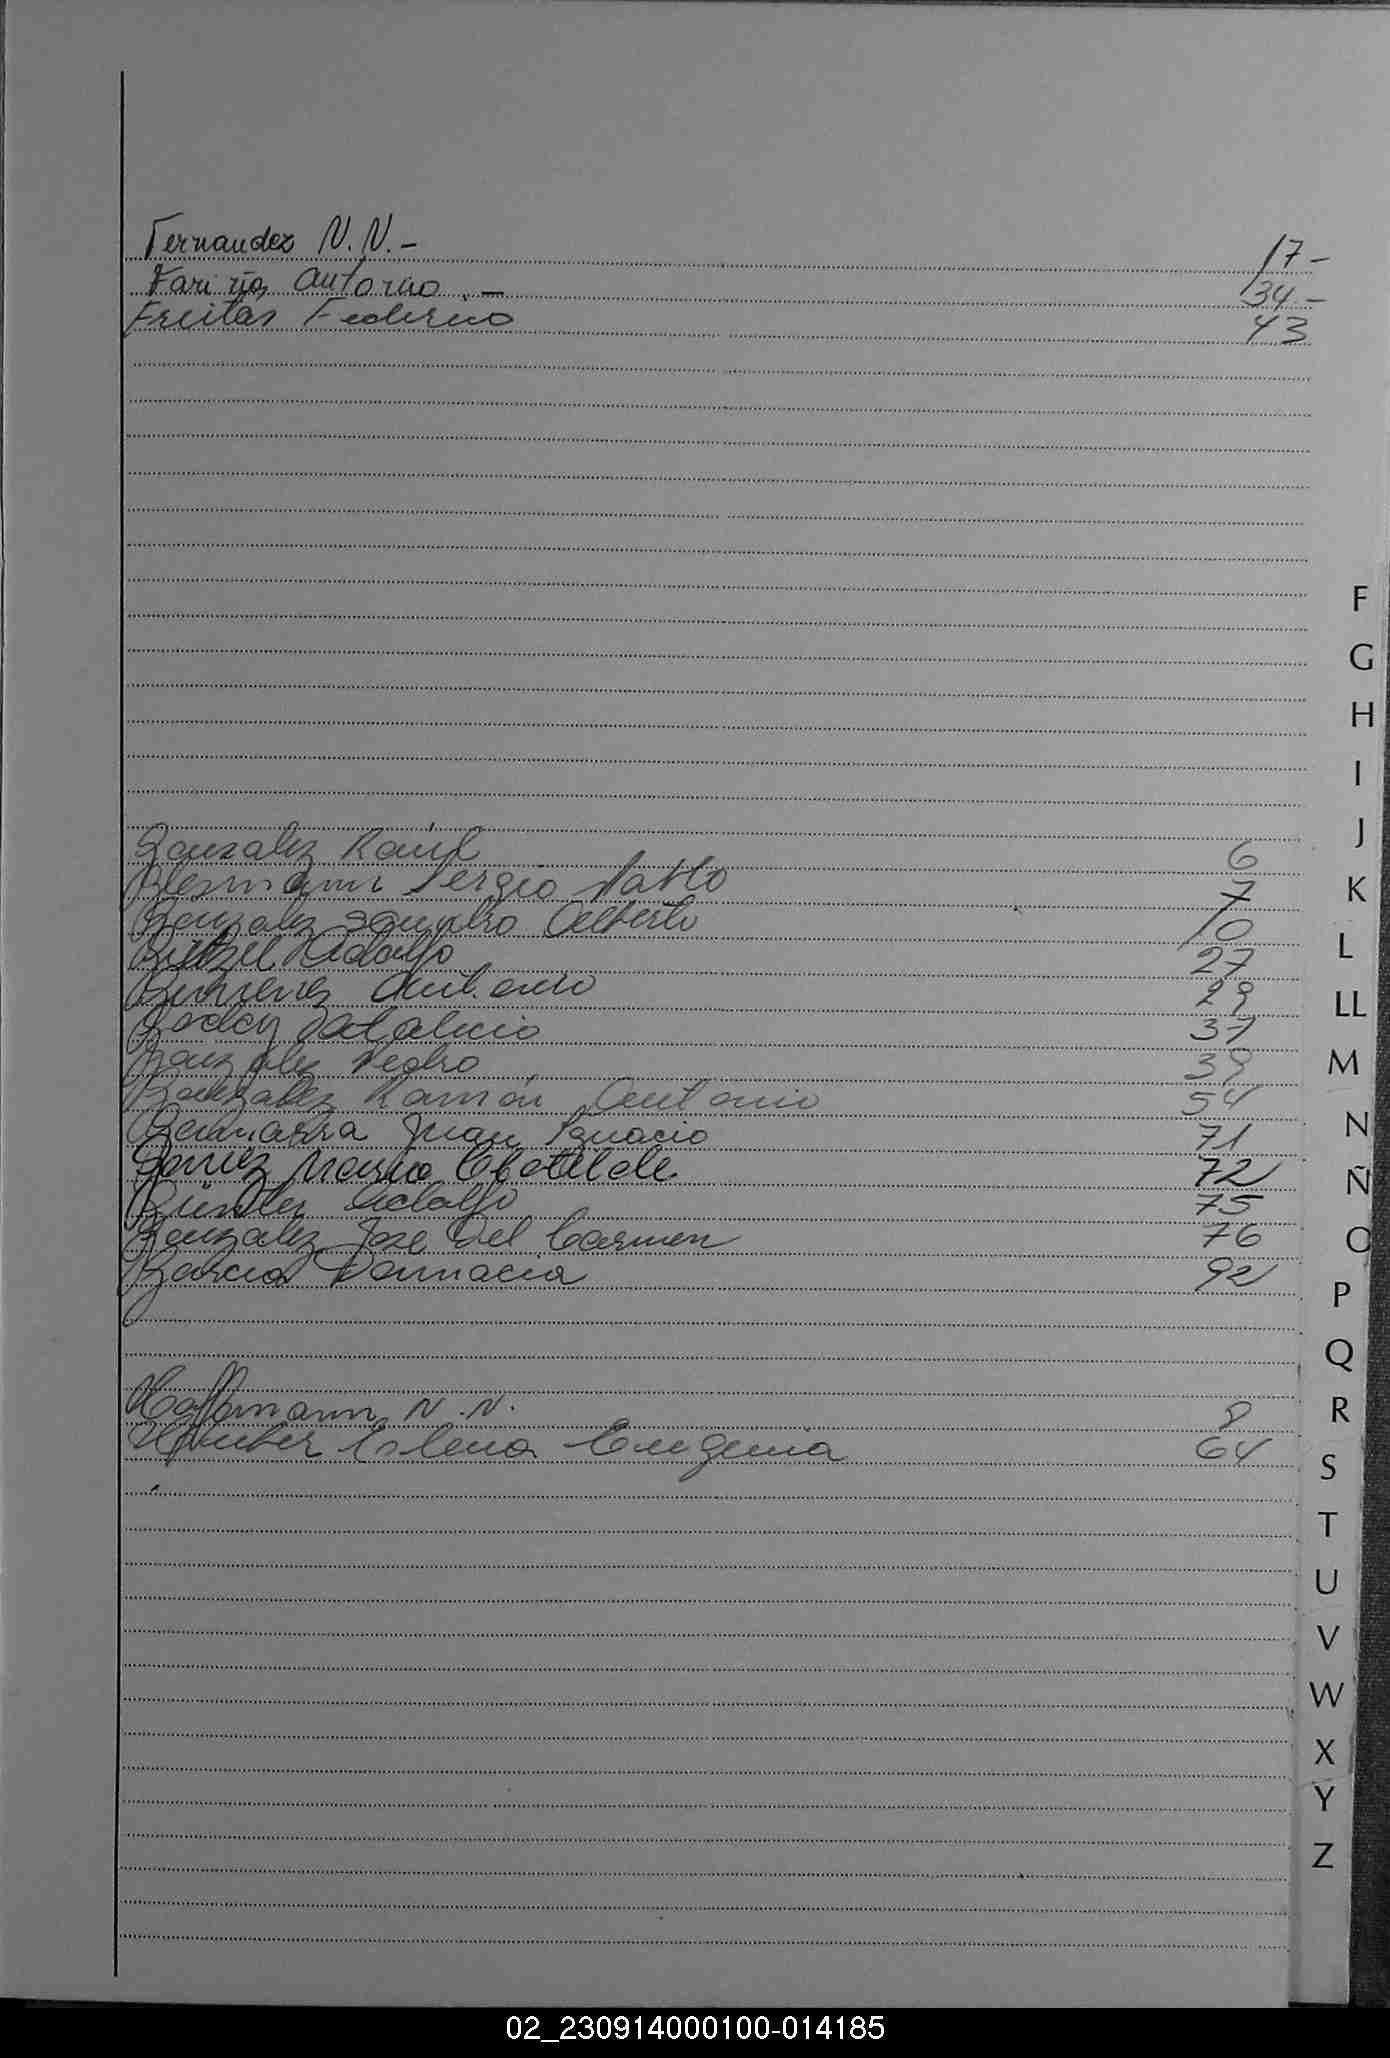 Fernandez N.N.- 17-
Fariña Antonio.- 34-
Freitas Federico 43
Gonzalez Raúl 6
Sergio Pablo 7
Gonzalez Sandro Alberto 10
Adolfo 27
Gimenez Antonio 29
Godoy Natalicio 37
Gonzalez Pedro 39
Gonzalez Ramón Antonio 54
Gamarra Juan Ignacio 71
Gomez Maria Clotilde 72
Adolfo 75
Gonzalez Jose Del Carmen 76
Garcia Damacia 92
Hoffmann N.N. 8
Huber Elena Eugenia 64
F
G
H
I
J
K
L
LL
M
N
Ñ
O
P
Q
R
S
T
U
V
W
X
Y
Z
02_230914000100-014185